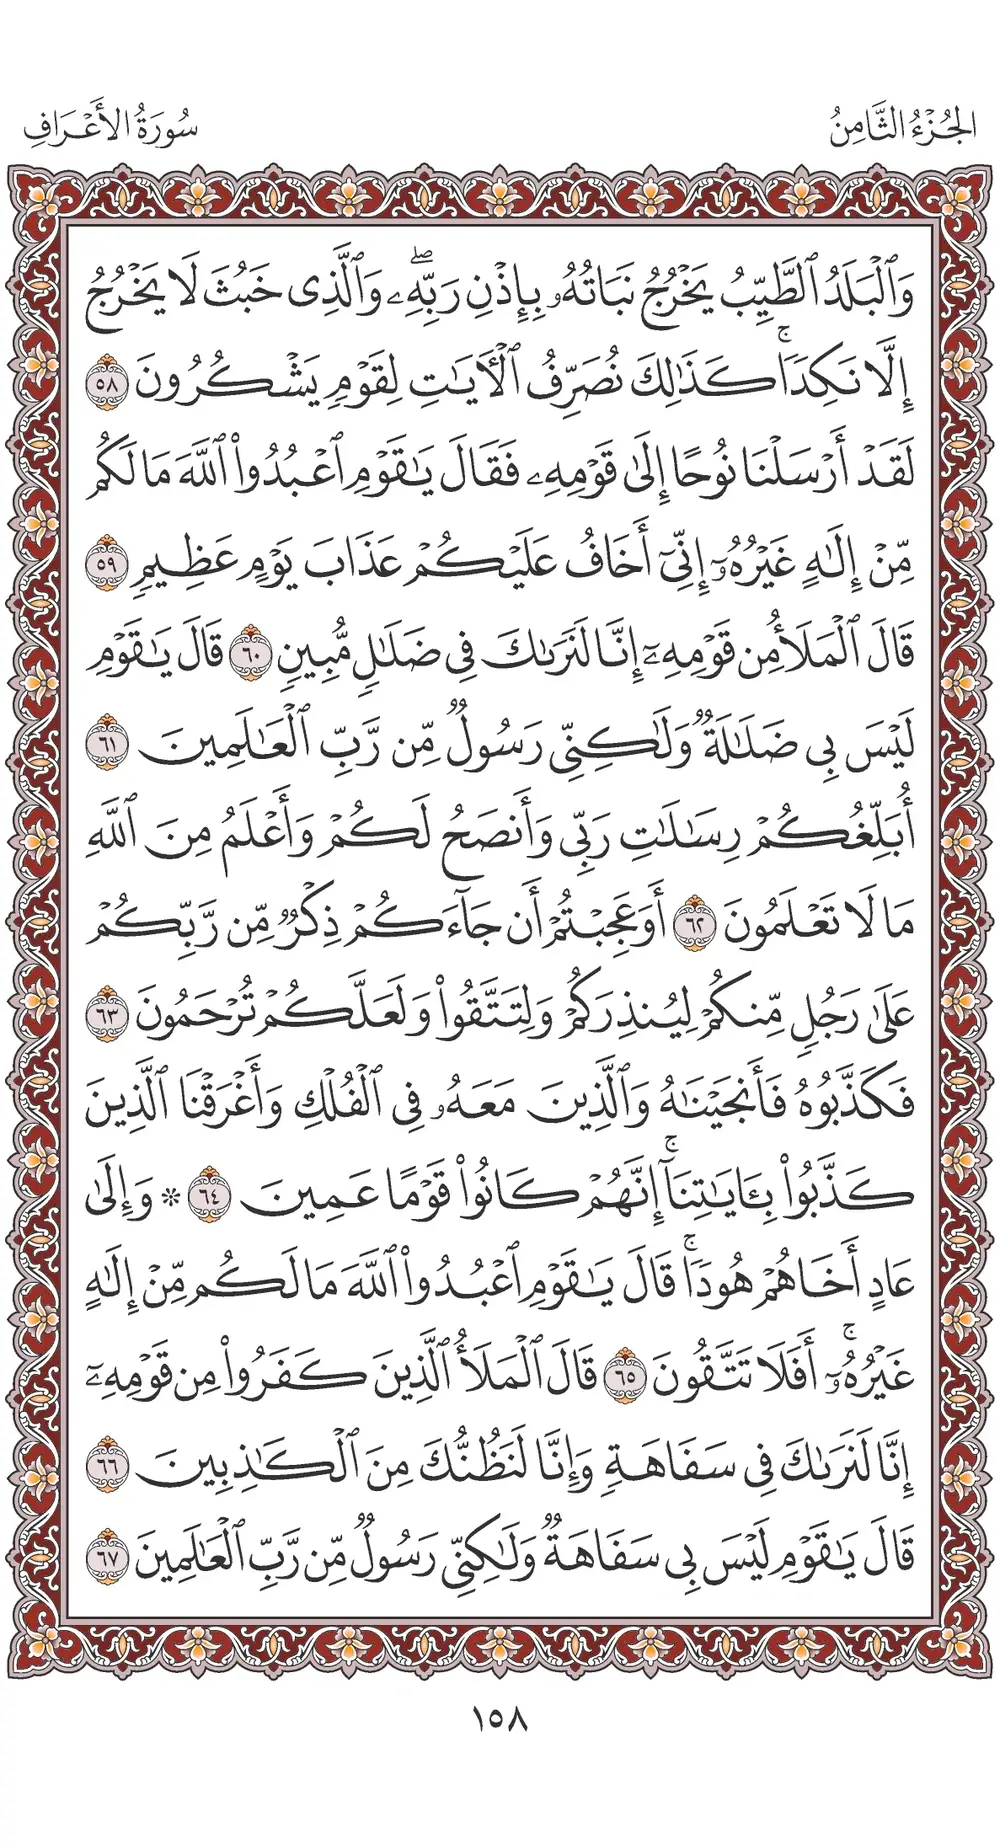 الجُزْءُ الثَّامِنُ
سُورَةُ الأَعْرَافِ
وَٱلْبَلَدُ ٱلطَّيِّبُ يَخْرُجُ نَبَاتُهُۥ بِإِذْنِ رَبِّهِۦۖ وَٱلَّذِى خَبُثَ لَا يَخْرُجُ
إِلَّا نَكِدًاۚ كَذَٰلِكَ نُصَرِّفُ ٱلْأٓيَٰتِ لِقَوْمٍ يَشْكُرُونَ ٥٨
لَقَدْ أَرْسَلْنَا نُوحًا إِلَىٰ قَوْمِهِۦ فَقَالَ يَٰقَوْمِ ٱعْبُدُوا۟ ٱللَّهَ مَا لَكُم
مِّنْ إِلَٰهٍ غَيْرُهُۥٓ إِنِّىٓ أَخَافُ عَلَيْكُمْ عَذَابَ يَوْمٍ عَظِيمٍ ٥٩
قَالَ ٱلْمَلَأُ مِن قَوْمِهِۦٓ إِنَّا لَنَرَىٰكَ فِى ضَلَٰلٍ مُّبِينٍ ٦٠ قَالَ يَٰقَوْمِ
لَيْسَ بِى ضَلَٰلَةٌ وَلَٰكِنِّى رَسُولٌ مِّن رَّبِّ ٱلْعَٰلَمِينَ ٦١
أُبَلِّغُكُمْ رِسَٰلَٰتِ رَبِّى وَأَنصَحُ لَكُمْ وَأَعْلَمُ مِنَ ٱللَّهِ
مَا لَا تَعْلَمُونَ ٦٢ أَوَعَجِبْتُمْ أَن جَآءَكُمْ ذِكْرٌ مِّن رَّبِّكُمْ
عَلَىٰ رَجُلٍ مِّنكُمْ لِيُنذِرَكُمْ وَلِتَتَّقُوا۟ وَلَعَلَّكُمْ تُرْحَمُونَ ٦٣
فَكَذَّبُوهُ فَأَنجَيْنَٰهُ وَٱلَّذِينَ مَعَهُۥ فِى ٱلْفُلْكِ وَأَغْرَقْنَا ٱلَّذِينَ
كَذَّبُوا۟ بِـَٔايَٰتِنَآۚ إِنَّهُمْ كَانُوا۟ قَوْمًا عَمِينَ ٦٤ * وَإِلَىٰ
عَادٍ أَخَاهُمْ هُودًاۚ قَالَ يَٰقَوْمِ ٱعْبُدُوا۟ ٱللَّهَ مَا لَكُم مِّنْ إِلَٰهٍ
غَيْرُهُۥٓۚ أَفَلَا تَتَّقُونَ ٦٥ قَالَ ٱلْمَلَأُ ٱلَّذِينَ كَفَرُوا۟ مِن قَوْمِهِۦٓ
إِنَّا لَنَرَىٰكَ فِى سَفَاهَةٍ وَإِنَّا لَنَظُنُّكَ مِنَ ٱلْكَٰذِبِينَ ٦٦
قَالَ يَٰقَوْمِ لَيْسَ بِى سَفَاهَةٌ وَلَٰكِنِّى رَسُولٌ مِّن رَّبِّ ٱلْعَٰلَمِينَ ٦٧
١٥٨